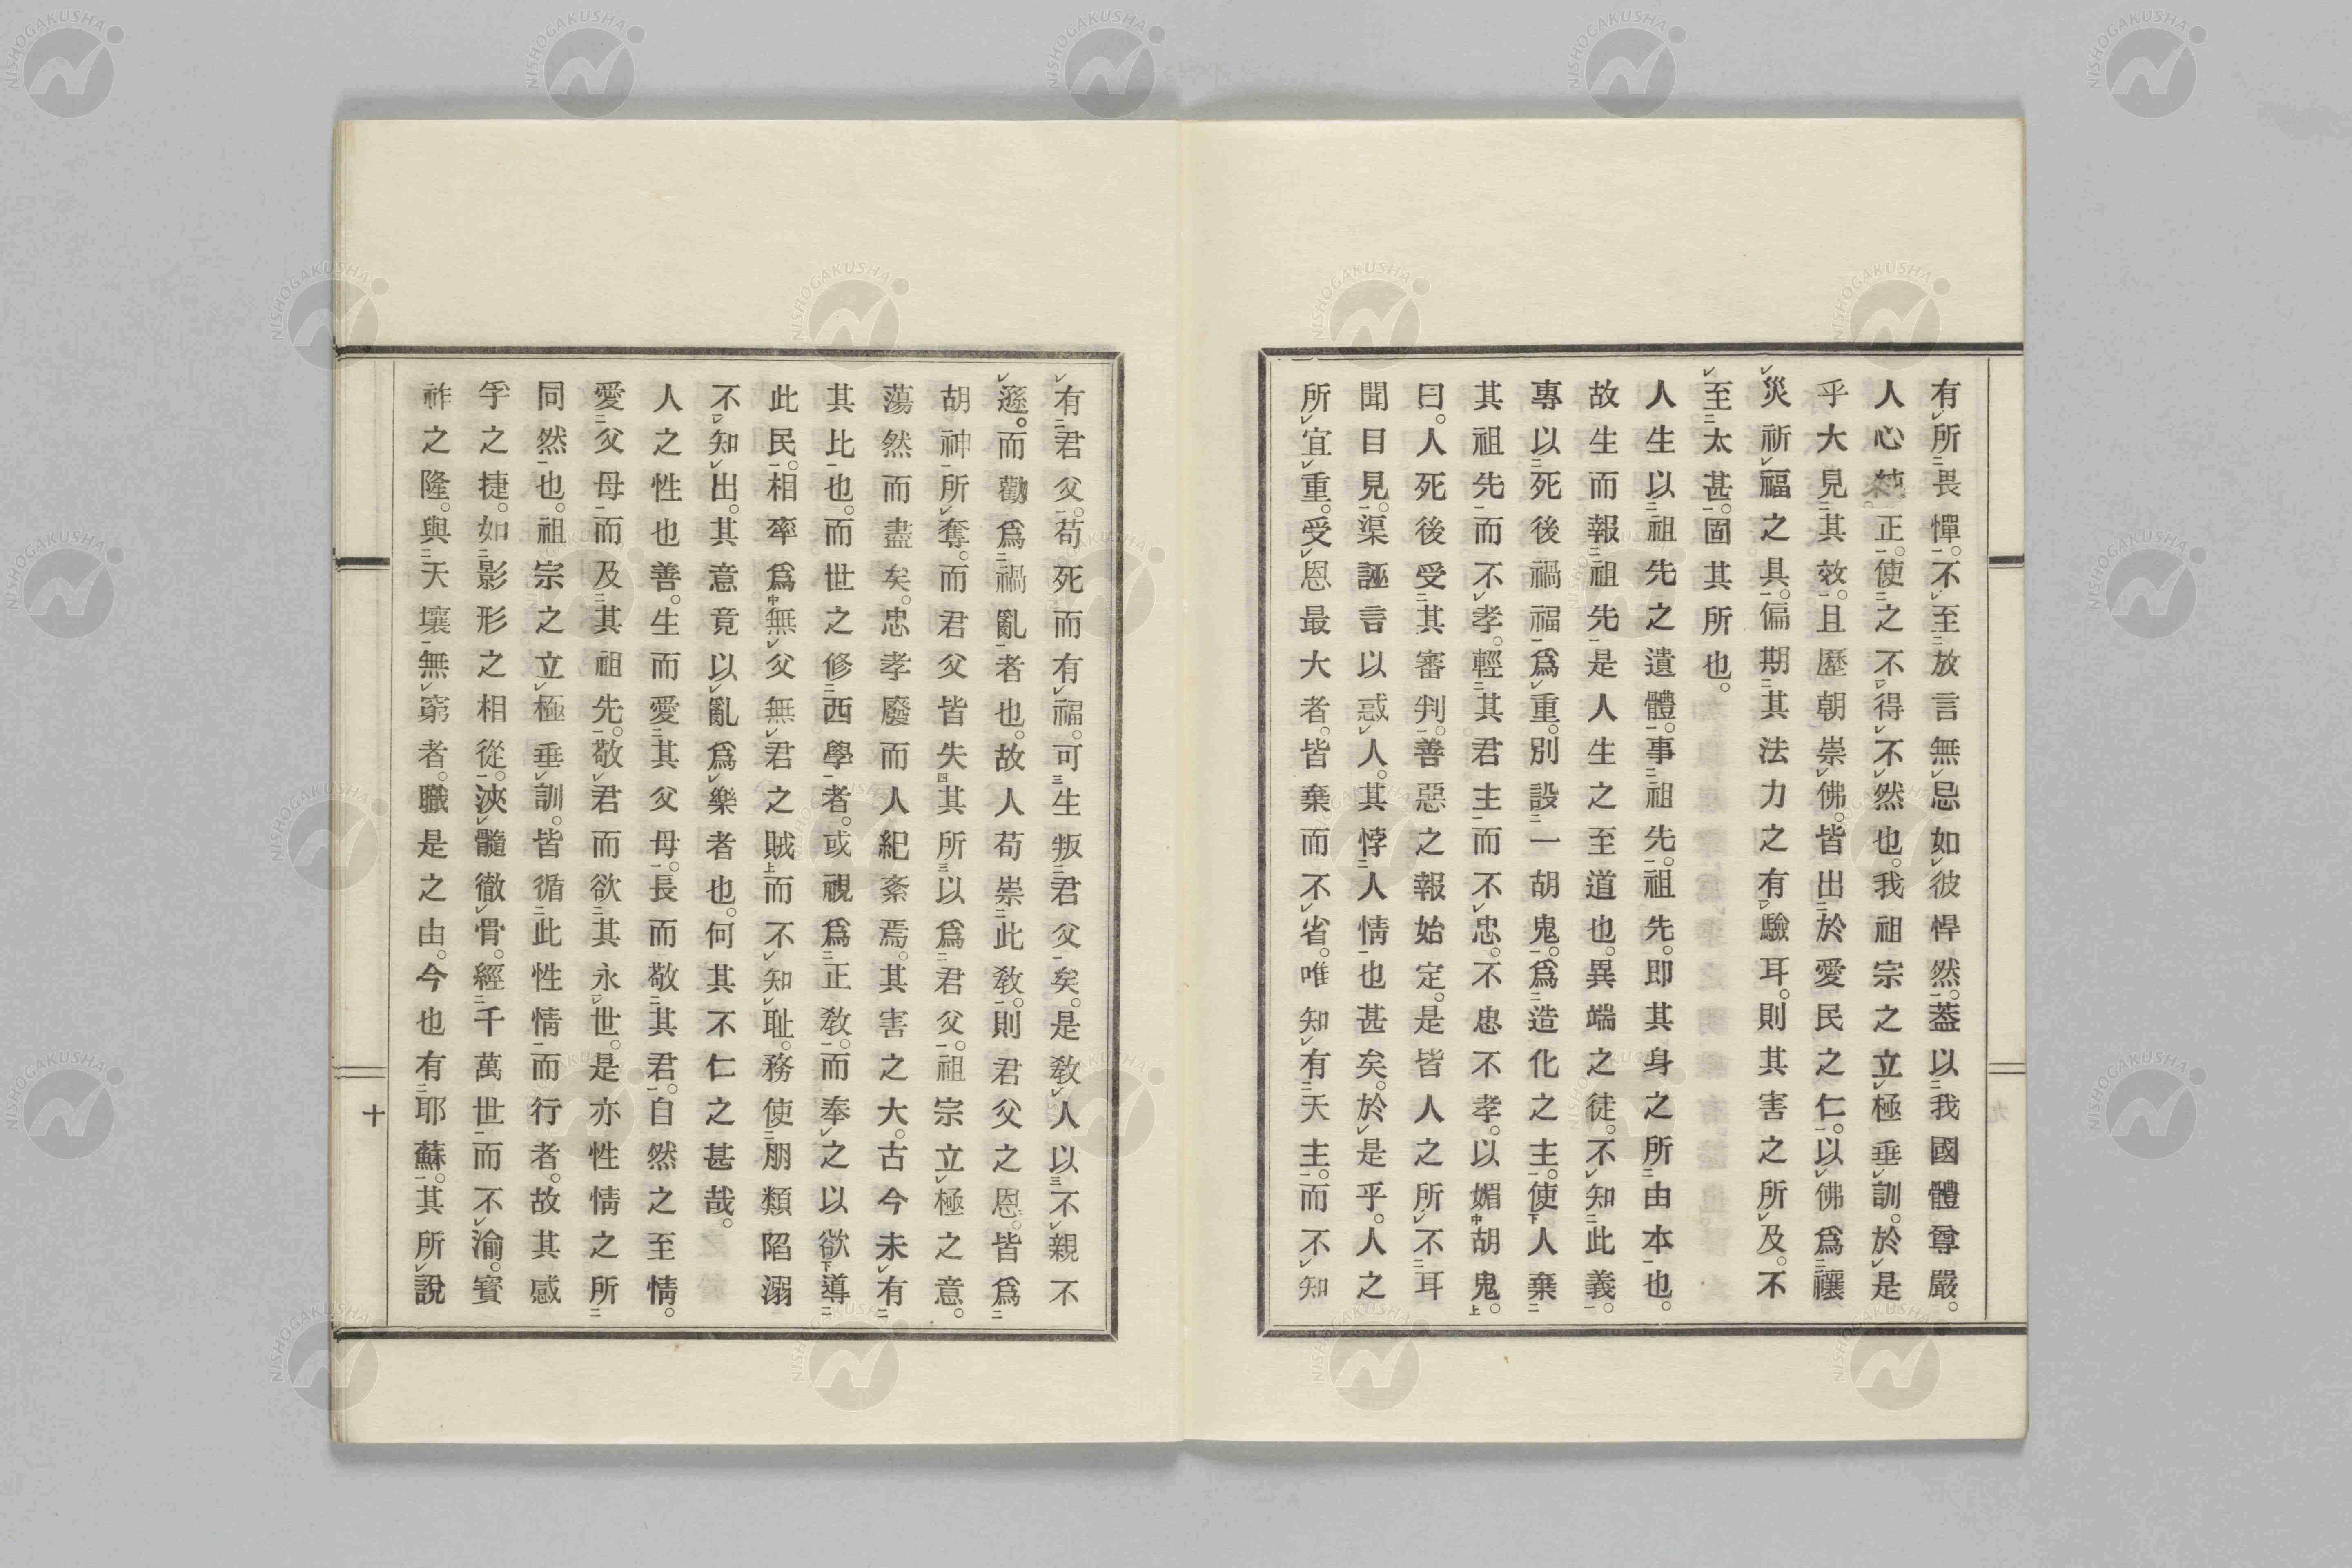 有所畏憚。不至放言無忌如彼悍然。葢以我國體尊嚴。
人心純正。使之不得不然也。我祖宗之立極垂訓。於是
乎大見其效。且歷朝崇佛。皆出於愛民之仁。以佛爲禳
災祈福之具。偏期其法力之有驗耳。則其害之所及。不
至太甚。固其所也。
人生以祖先之遺體。事祖先。祖先。即其身之所由本也。
故生而報祖先。是人生之至道也。異端之徒。不知此義。
專以死後禍福爲重。別設一胡鬼。爲造化之主。使人棄
其祖先而不孝。輕其君主而不忠。不忠不孝。以媚胡鬼。
曰。人死後受其審判。善惡之報始定。是皆人之所不耳
聞目見。渠誣言以惑人。其悖人情也甚矣。於是乎。人之
所宜重。受恩最大者。皆棄而不省。唯知有天主。而不知
有君父。苟死而有福。可生叛君父矣。是教人以不親不
遜。而勸爲禍亂者也。故人苟崇此教。則君父之恩。皆爲
胡神所奪。而君父皆失其所以爲君父。祖宗立極之意。
蕩然而盡矣。忠孝廢而人紀紊焉。其害之大。古今未有
其比也。而世之修西學者。或視爲正教。而奉之以欲導
此民。相率爲無父無君之賊而不知耻。務使朋類陷溺
不知出。其意竟以亂爲樂者也。何其不仁之甚哉。
人之性也善。生而愛其父母。長而敬其君。自然之至情。
愛父母而及其祖先。敬君而欲其永世。是亦性情之所
同然也。祖宗之立極垂訓。皆循此性情而行者。故其感
孚之捷。如影形之相從。浹髓徹骨。經千萬世而不渝。寳
祚之隆。與天壤無窮者。職是之由。今也有耶蘇。其所說
十
NISHOGAKUSHA